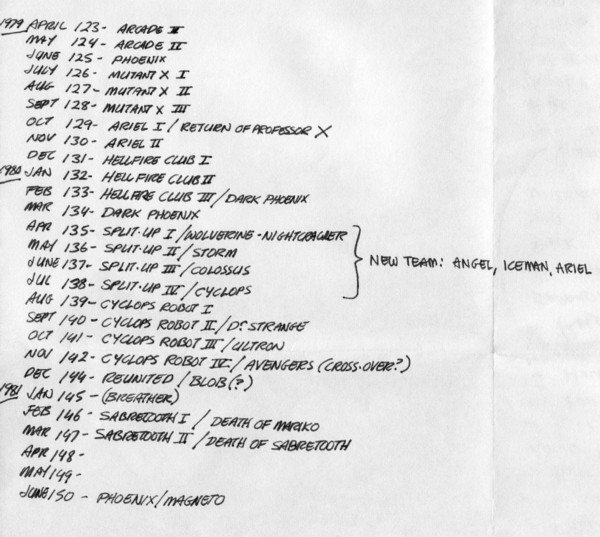 1979 APRIL 123 - ARCADE II
MAY 124 - ARCADE II
JUNE 125 - PHOENIX
JULY 126 - MUTANT X I
AUG 127 - MUTANT X II
SEPT 128 - MUTANT X III
OCT 129 - ARIEL I / RETURN OF PROFESSOR X
NOV 130 - ARIEL II
DEC 131 - HELLFIRE CLUB I
1980 JAN 132 - HELLFIRE CLUB II
FEB 133 - HELLFIRE CLUB III / DARK PHOENIX
MAR 134 - DARK PHOENIX
APR 135 - SPLIT-UP I / WOLVERINE - NIGHTCRAWLER
MAY 136 - SPLIT-UP II / STORM
JUNE 137 - SPLIT-UP III / COLOSSUS
NEW TEAM: ANGEL, ICEMAN, ARIEL
JUL 138 - SPLIT-UP IV / CYCLOPS
AUG 139 - CYCLOPS ROBOT I
SEPT 140 - CYCLOPS ROBOT II / DR STRANGE
OCT 141 - CYCLOPS ROBOT III / ULTRON
NOV 142 - CYCLOPS ROBOT IV / AVENGERS (CROSS-OVER?)
DEC 144 - REUNITED / BLOB (?)
1981 JAN 145 - (BREATHER)
FEB 146 - SABRETOOTH I / DEATH OF MARIKO
MAR 147 - SABRETOOTH II / DEATH OF SABRETOOTH
APR 148 -
MAY 149 -
JUNE 150 - PHOENIX / MAGNETO